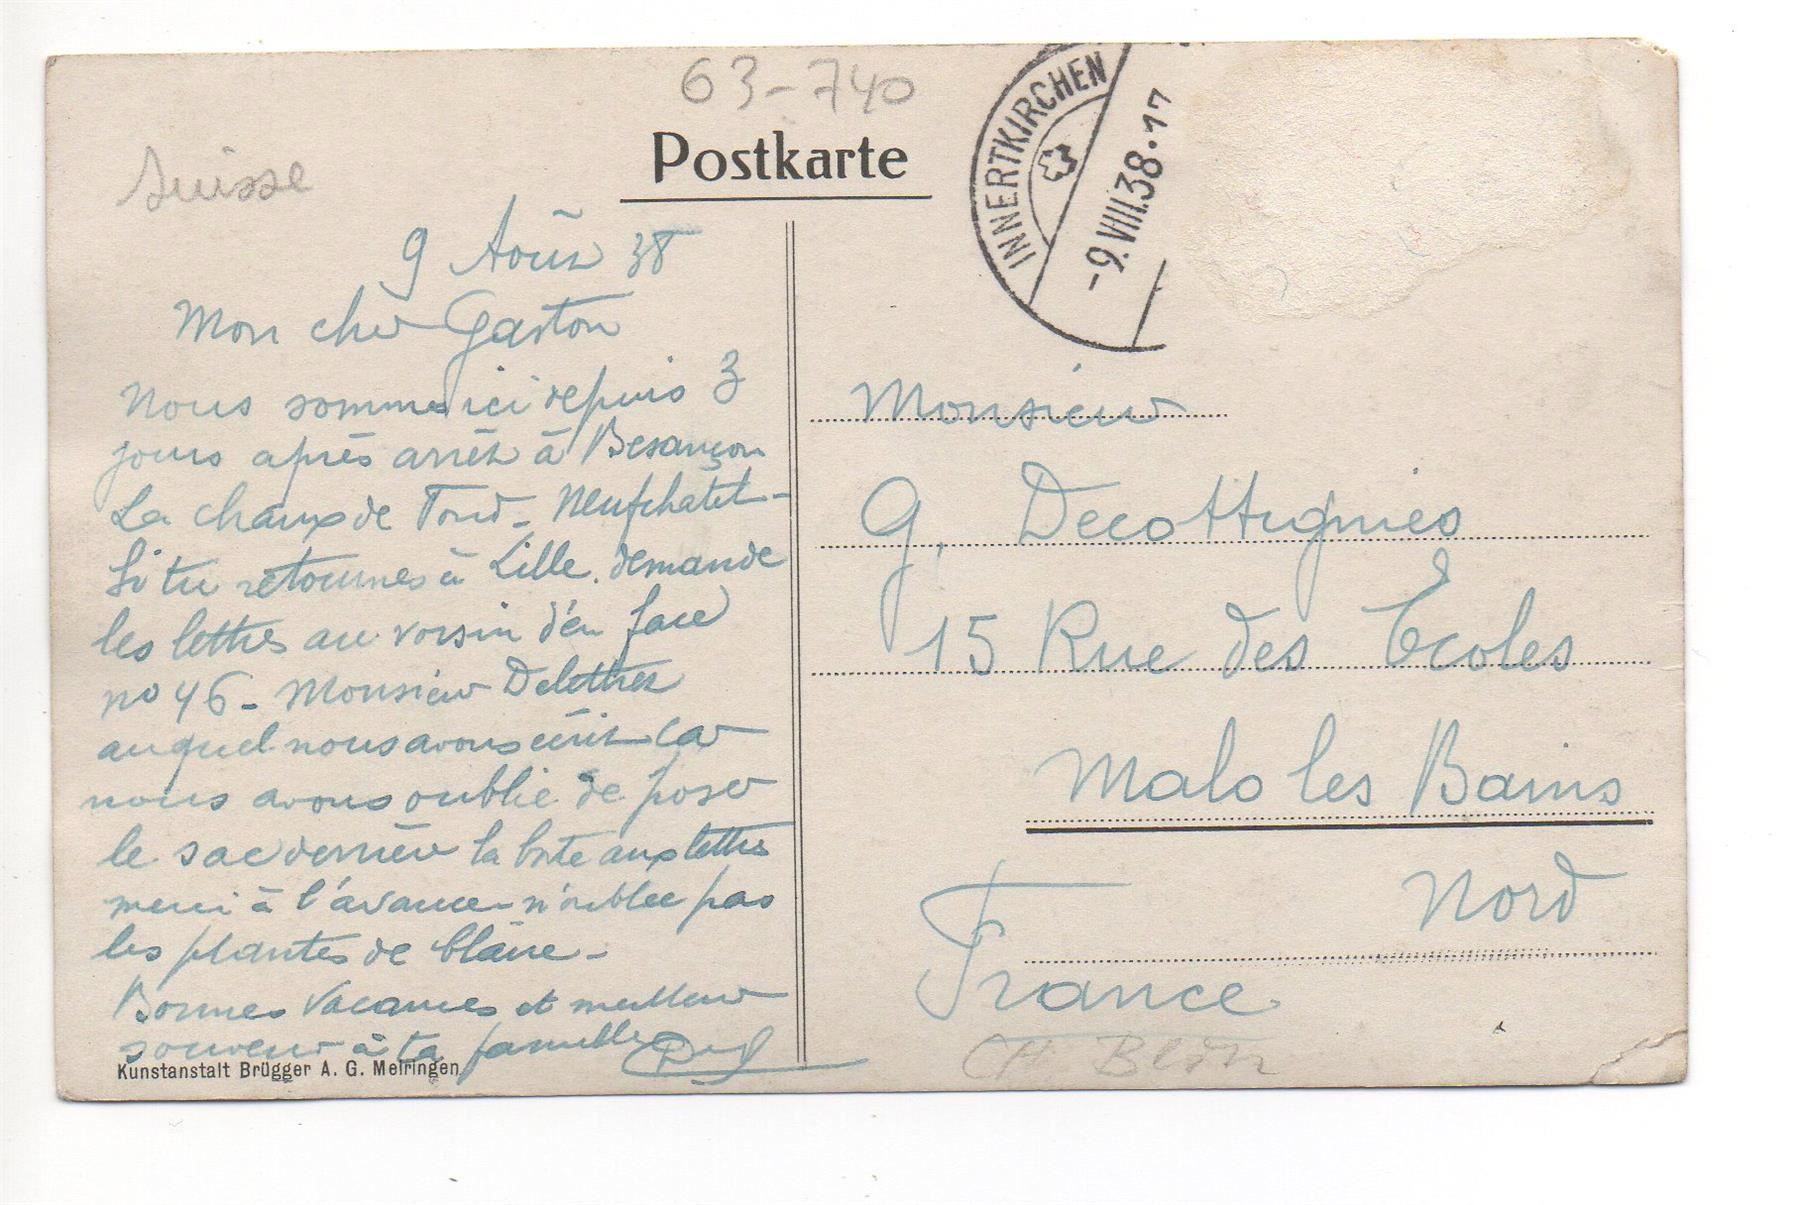 63-740
Postkarte
Suisse
INNERTKIRCHEN
-9.VIII.38.17
9 Août 38
Mon cher Gaston
Nous sommes ici depuis 3
jours après arrêt à Besançon
La Chaux de Fond - Neufchatel -
Si tu retournes à Lille. demande
les lettres au voisin d'en face
no 46 - Monsieur Delettrez
auquel nous avons écrit car
nous avons oublié de poser
le sac derrière la boite aux lettres
merci à l'avance - n'oublie pas
les plantes de
Bonnes Vacances et meilleur
souvenir à ta famille
Kunstanstalt Brügger A. G. Meiringen
Monsieur
G. Decottignies
15 Rue des Ecoles
Malo les Bains
Nord
France
CH